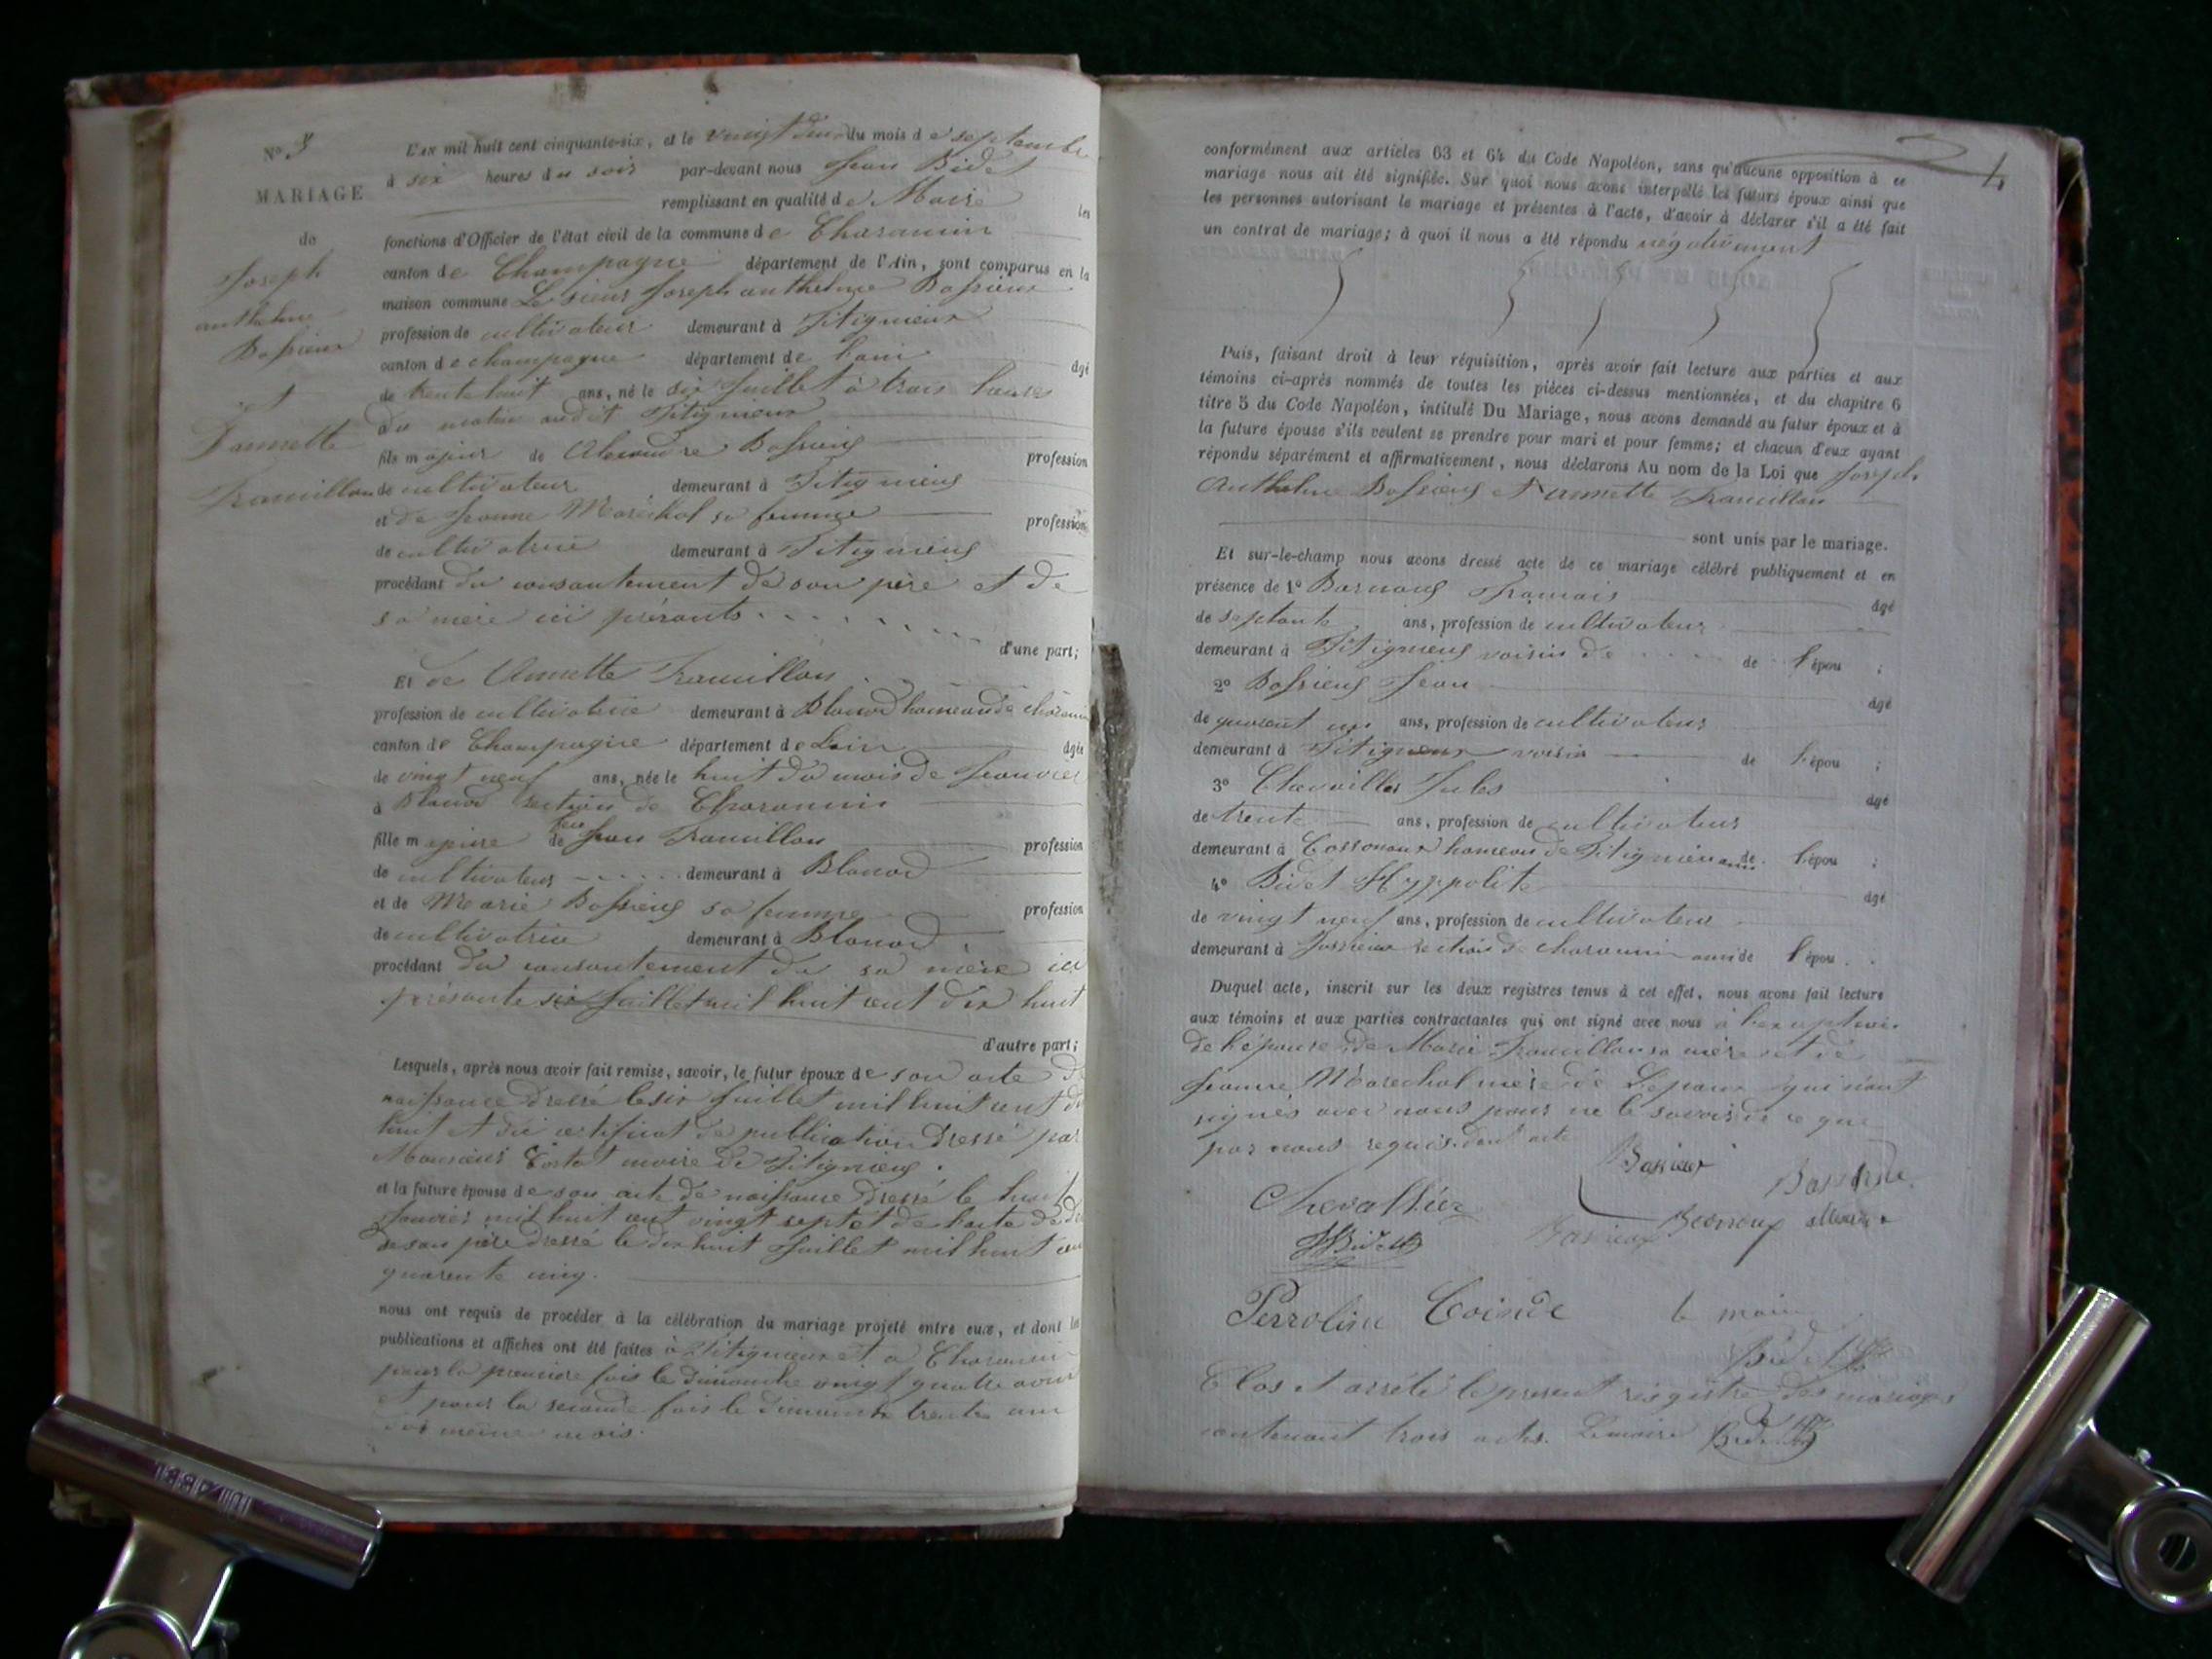 N° 3
MARIAGE
de
Joseph
anthelme
Bassieux
et
Annette
Travaillon
L'AN mil huit cent cinquante-six, et le vingt du mois de septembre
à six heures du soir par-devant nous Jean Bidet
remplissant en qualité de Maire les
fonctions d'Officier de l'état civil de la commune de Charancin
canton de Champagne département de l'Ain, sont comparus en la
maison commune Le sieur Joseph anthelme Bassieux
profession de cultivateur demeurant à Sitignieux
canton de champagne département de Lain âgé
de trente huit ans, né le six Juillet à trois heures
du matin audit Sitignieux
fils majeur de Alexandre Bassieux profession
de cultivateur demeurant à Sitignieux
et de Jeanne Maréchal sa femme profession
de cultivatrice demeurant à Sitignieux
procédant du consantement de son père et de
sa mère ici présants
d'une part;
Et de Annette
profession de cultivatrice demeurant à Blanod hameau de charancin
canton de Champagne département de Lain âgée
de vingt neuf ans, née le huit du mois de Janvier
à Blanod section de Charancin
fille majeure de feu Jean profession
de cultivateur demeurant à Blanod
et de Marie Bassieux sa femme profession
de cultivatrice demeurant à Blanod
procédant du consantement de sa mère ici
présante six Juillet mil huit cent dix huit
d'autre part;
Lesquels, après nous avoir fait remise, savoir, le futur époux de son acte de
naissance dressé le six Juillet mil huit cent dix
huit et du certificat de publication dressé par
Monsieur maire de Sitignieux.
et la future épouse de son acte de naissance dressé le huit
Janvier mil huit cent vingt sept et de lacte de
de son père dressé le dix huit Juillet mil huit cent
quarente cinq.
nous ont requis de procéder à la célébration du mariage projeté entre eux, et dont les
publications et affiches ont été faites à Sitignieux et a Charancin
pour la première fois le dimanche vingt quatre aout
et pour la seconde fois le dimanche trente un
du même mois.
conformément aux articles 63 et 64 du Code Napoléon, sans qu'aucune opposition à ce
mariage nous ait été signifiée. Sur quoi nous avons interpellé les futurs époux ainsi que
les personnes autorisant le mariage et présentes à l'acte, d'avoir à déclarer s'il a été fait
un contrat de mariage; à quoi il nous a été répondu négativement
Puis, faisant droit à leur réquisition, après avoir fait lecture aux parties et aux
témoins ci-après nommés de toutes les pièces ci-dessus mentionnées, et du chapitre 6
titre 5 du Code Napoléon, intitulé Du Mariage, nous avons demandé au futur époux et à
la future épouse s'ils veulent se prendre pour mari et pour femme; et chacun d'eux ayant
répondu séparément et affirmativement, nous déclarons Au nom de la Loi que Joseph
Anthelme Bassieux et annette
sont unis par le mariage.
Et sur-le-champ nous avons dressé acte de ce mariage célébré publiquement et en
présence de 1° Barnoux François âgé
de septante ans, profession de cultivateur
demeurant à Sitignieux voisin de de l'épou ;
2° Bassieux Jean âgé
de quarent un ans, profession de cultivateur
demeurant à Sitignieux voisin de l'épou ;
3° Chevallier Jules âgé
de trente ans, profession de cultivateur
demeurant à hameau de Sitignieux ami de l'épou ;
4° Bidet Hyppolite âgé
de vingt neuf ans, profession de cultivateur
demeurant à section de charancin ami de l'épou
Duquel acte, inscrit sur les deux registres tenus à cet effet, nous avons fait lecture
aux témoins et aux parties contractantes qui ont signé avec nous à l'exeption
de l'épouse, de Marie sa mère et de
Jeanne Maréchal mère de Lépoux qui n'ont
signés avec nous pour ne le savoir de ce que
par nous requis. dont acte
Bassieux
Chevallier
Perroline Coinde le maire
Bidet
Clos et arrêté le présent régistre des mariages
contenant trois actes. Le maire Bidet